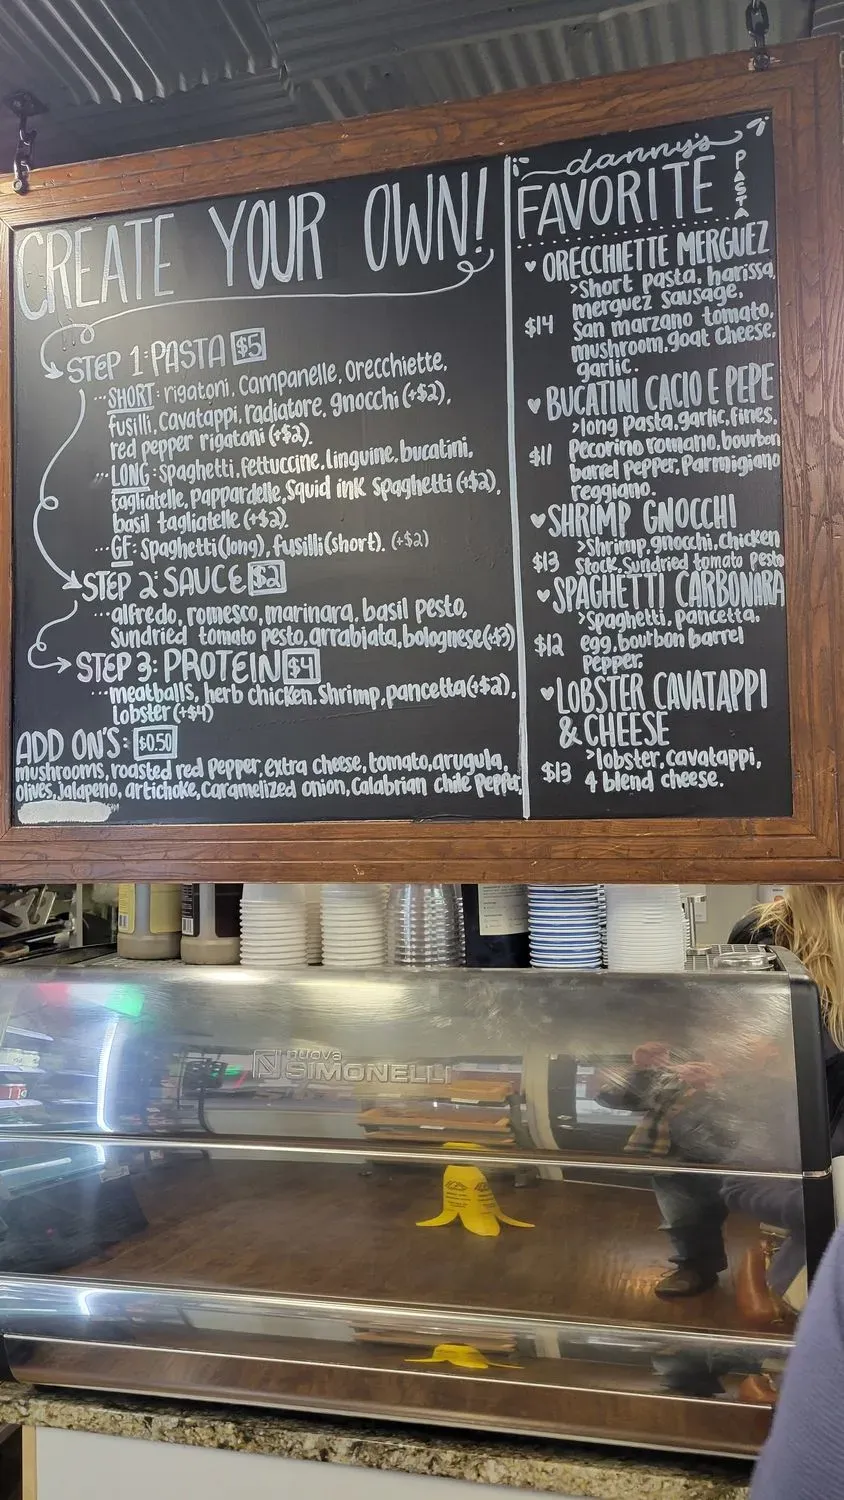 CREATE YOUR OWN!
STEP 1: PASTA $5
SHORT: rigatoni, Campanelle, Orecchiette,
fusilli, Cavatappi, radiatore, gnocchi (+$2),
red pepper rigatoni (+$2).
LONG: Spaghetti, Fettuccine, Linguine, bucatini,
tagliatelle, Pappardelle, Squid ink Spaghetti (+$2),
basil tagliatelle (+$2).
GF: Spaghetti (long), fusilli (short). (+$2)
STEP 2: SAUCE $2
alfredo, romesco, marinara, basil pesto,
Sundried tomato pesto, arrabiata, bolognese (+$3)
STEP 3: PROTEIN $4
meatballs, herb chicken. Shrimp, pancetta (+$2),
Lobster (+$4)
ADD ON'S: $0.50
mushrooms, roasted red pepper, extra cheese, tomato, arugula,
olives, Jalapeno, artichoke, Caramelized onion, Calabrian chile pepper
danny's
FAVORITE PASTA
♥ ORECCHIETTE MERGUEZ
>Short pasta, harissa,
merguez sausage,
$14 San marzano tomato,
mushroom, goat cheese,
garlic.
♥ BUCATINI CACIO E PEPE
>long pasta, garlic, fines,
$11 Pecorino romano, bourbon
barrel pepper, Parmigiano
reggiano.
♥ SHRIMP GNOCCHI
>Shrimp, gnocchi, Chicken
$13 Stock, Sundried tomato pesto
♥ SPAGHETTI CARBONARA
>Spaghetti, pancetta,
$12 egg, bourbon barrel
pepper.
♥ LOBSTER CAVATAPPI
& CHEESE
>lobster, cavatappi,
$13 4 blend cheese.
nuova
SIMONELLI